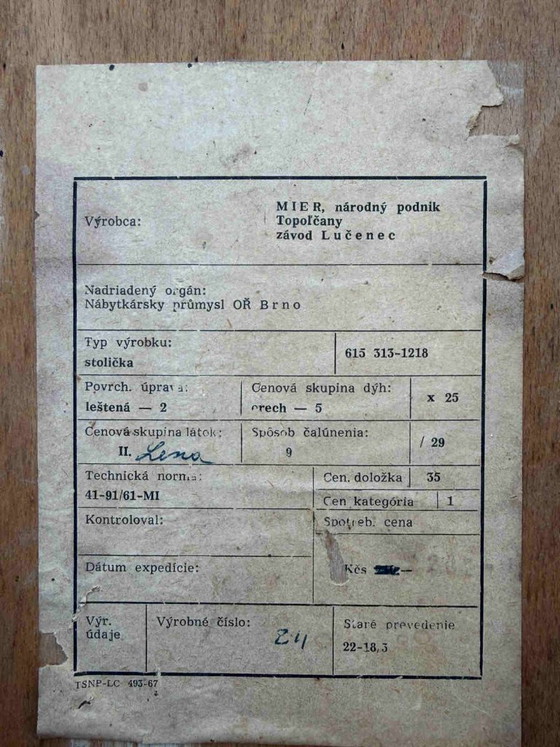 Výrobca:
MIER, národný podnik
Topoľčany
závod Lučenec
Nadriadený orgán:
Nábytkársky průmysl OŘ Brno
Typ výrobku:
stolička
615 313-1218
Povrch. úprava:
leštená — 2
Cenová skupina dýh:
orech — 5
x 25
Cenová skupina látok:
II. Lena
Spôsob čalúnenia:
9
/ 29
Technická norma:
41-91/61-MI
Cen. doložka
35
Cen kategória
1
Kontroloval:
Spotreb. cena
Dátum expedície:
Kčs
Výr.
údaje
Výrobné číslo:
24
Staré prevedenie
22-18,3
TSNP-LC 493-67